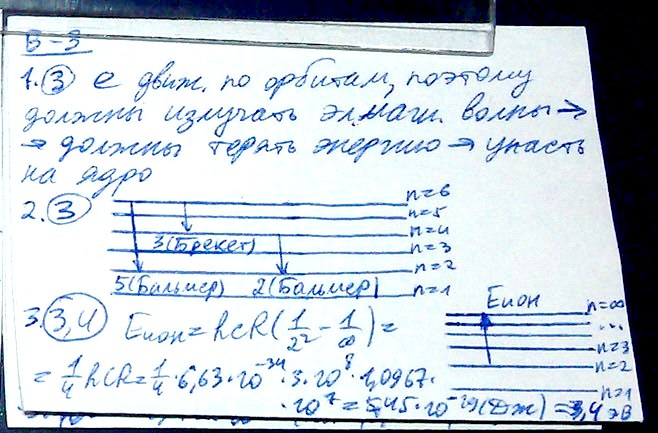 В-3
1. 3 e движ. по орбитам, поэтому
должны излучать эл.магн. волны →
→ должны терять энергию → упасть
на ядро
2. 3
n=6
n=5
n=4
3(Брекет) n=3
n=2
5(Бальмер) 2(Бальмер) n=1
3. 3,4 Eион = hcR(1/2² - 1/∞) =
= 1/4 hcR = 1/4 · 6,63·10⁻³⁴ · 3·10⁸ · 1,0967·
·10⁷ = 5,45·10⁻¹⁹(Дж) = 3,4 эВ
Eион
n=∞
...
n=3
n=2
n=1